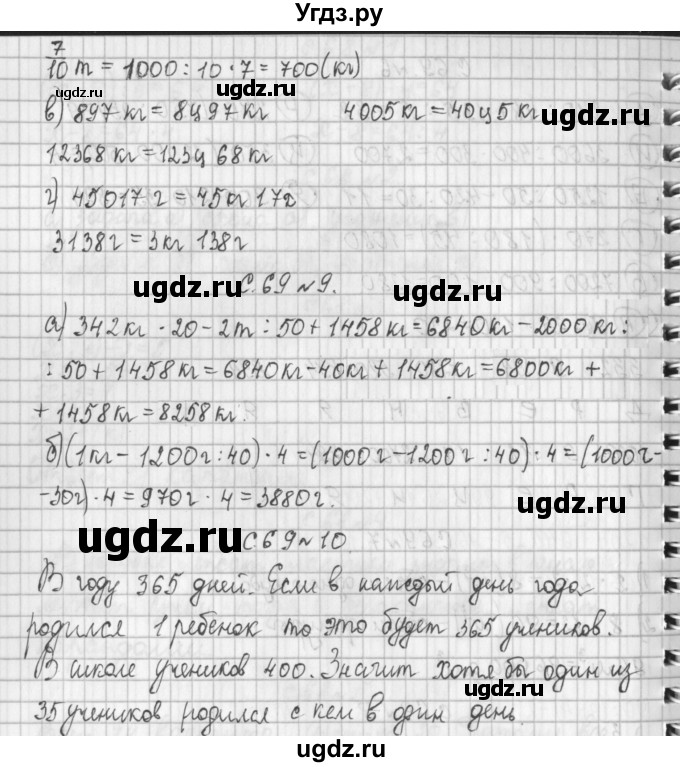 Угдз.ру
7/10 т = 1000 : 10 · 7 = 700 (кг)
ugdz.ru ugdz.ru
в) 897 кг = 8ц 97 кг 4005 кг = 40ц 5 кг
ugdz.ru
12368 кг = 123ц 68 кг
г) 45017 г = 45кг 17г
ugdz.ru
3138г = 3кг 138г
ugdz.ru
С.69 №9.
а) 342кг · 20 - 2т : 50 + 1458 кг = 6840кг - 2000 кг :
ugdz.ru
: 50 + 1458кг = 6840кг - 40кг + 1458кг = 6800кг +
ugdz.ru
+ 1458кг = 8258кг.
б) (1кг - 1200г : 40) · 4 = (1000г - 1200г : 40) · 4 = (1000г -
- 30г) · 4 = 970г · 4 = 3880г.
ugdz.ru
ugdz.ru
С.69 №10.
В году 365 дней. Если в каждый день года
ugdz.ru
родился 1 ребенок то это будет 365 учеников.
ugdz.ru
В школе учеников 400. Значит хотя бы один из
ugdz.ru
35 учеников родился с кем в один день.
ugdz.ru
ugdz.ru